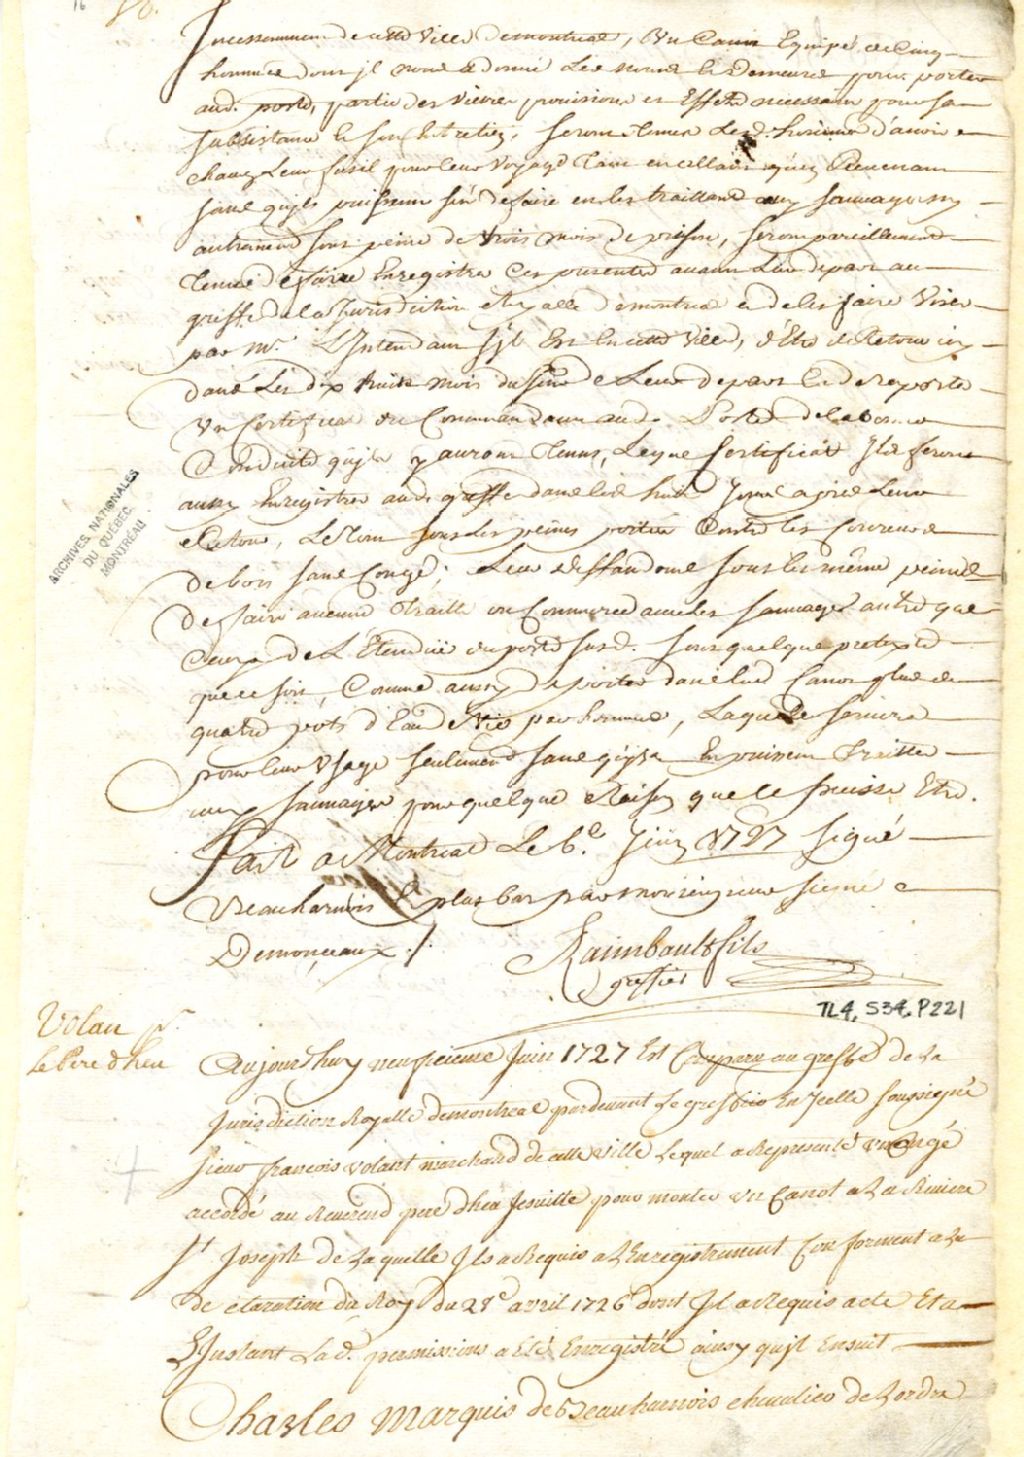 16
Incessamment de cette Ville de montreal, un Canot Equipé de Cinq
hommes dont jl nous a donné Les noms & Demeures pour porter
aud. poste, partie des vivres provisions et Effets necessaires pour sa
subsistance & son Entretien, seront tenus Lesd. hommes d'avoir
chacun Leur fusil pour leur voyage tant en allant qu'en Revenant
sans qujls puissent s'en defaire en les traittant aux sauvages ny
autrement sous peine de trois mois de prison, seront pareillement
tenus de faire Enregistrer Ces presentes avant Leur depart au
greffe de la Jurisdiction Royalle de montreal et de les faire Viser
par Mr. L'Intendant s'jl Est En cette Ville, d'Etre de Retour icy
dans Les dix huit mois du jour de Leur depart & de Reporter
Un Certificat du Commandant aud. Poste de la bonne
Conduite qujls y auront tenus, Lequel Certificat Jls feront
aussy Enregistrer aud. greffe dans les huit Jours apres Leur
Retour, Le tout sous les peines portées Contre les Coureurs
de bois sans Congé; Leur deffendons sous les même peines
de faire aucune traitte ou Commerce avec les sauvages autre que
Ceux de L'Etenduë du poste susd. sous quelque pretexte
que ce soit, Comme aussy de porter dans led. Canot plus de
quatre pots d'Eau de Vie par homme, Laquelle servira
pour leur Usage seulement sans qujls En puissent traitter
aux sauvages pour quelque Raison que ce puisse Etre.
Fait a Montreal Le 6e. Juin 1727 signé
Beauharnois & plus bas par monseigneur signé
Demonceaux ./.
Raimbault fils
greffier
ARCHIVES NATIONALES
DU QUÉBEC
MONTRÉAL
TL4, S34, P221
Volan pr.
Le Pere dheu
Aujourdhuy neufieieme Juin 1727 Est Comparu au greffe de La
Jurisdiction Royalle de montreal pardevant Le greffier En Jcelle soussigné
sieur francois volant marchand de cette ville Lequel a Representé un Congé
accordé au Reverend pere dheu Jesuitte pour monter un Canot a La Riviere
St Joseph de Laquelle Jl a Requis a L'Enregistrement Conforment a La
declaration du Roy du 28e avril 1726 dont Jl a Requis acte Et a
L'Instant Lad. permission a Eté Enregistré ainsy qujl Ensuit
Charles Marquis de Beauharnois chevalier de Lordre